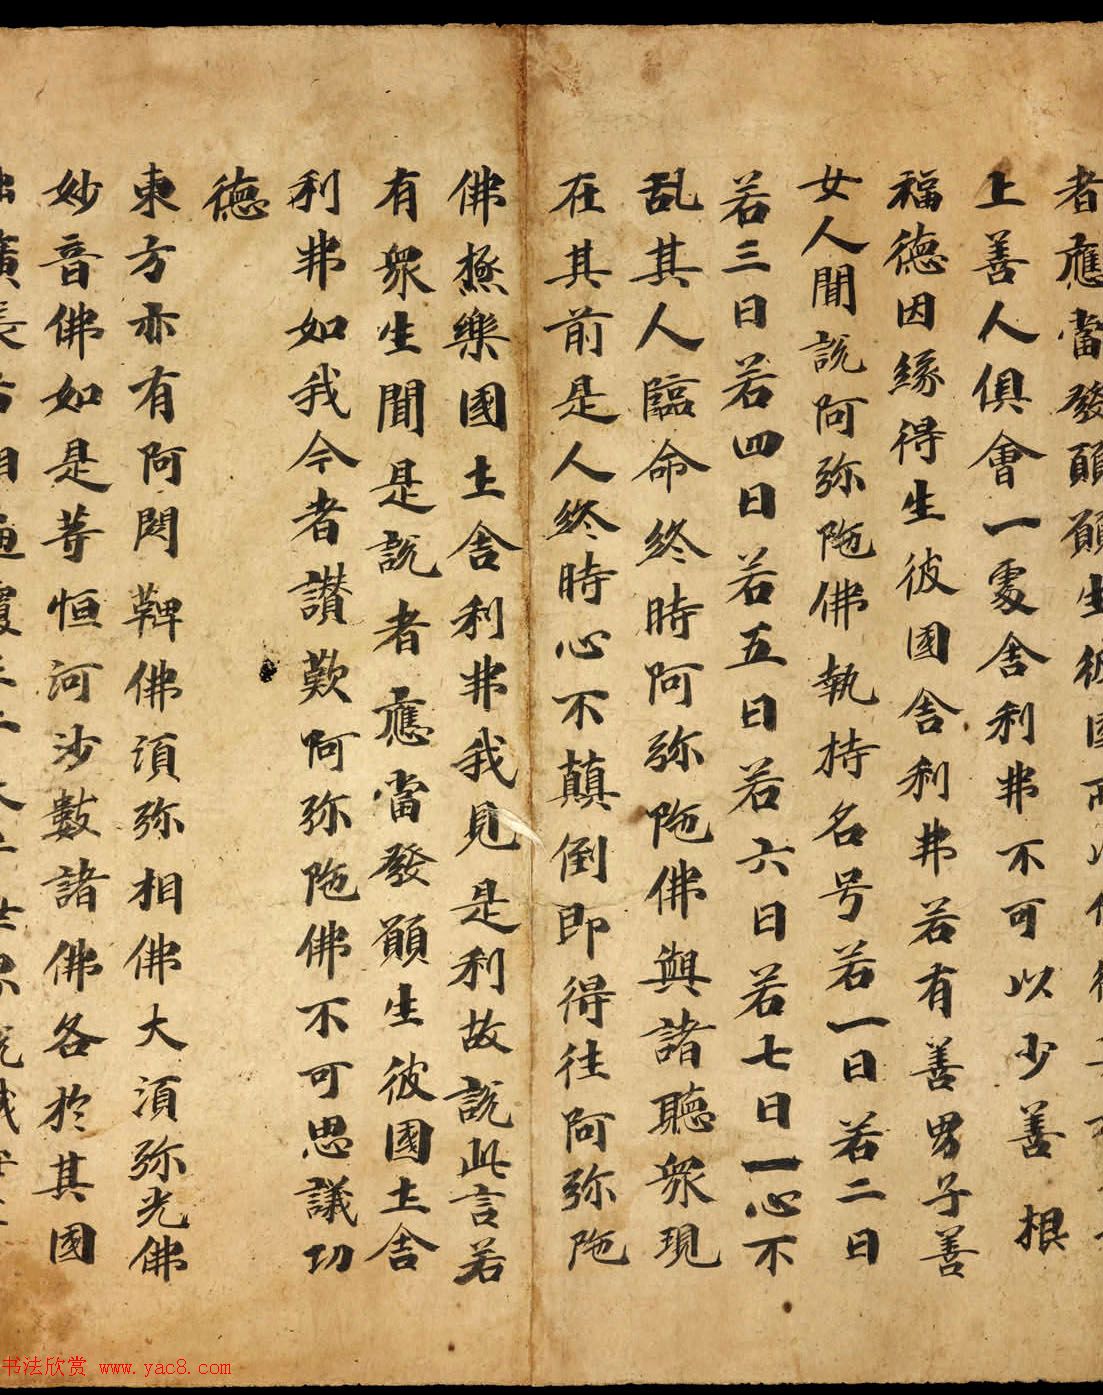 者應當發願願生彼國所以
上善人俱會一處舍利弗不可以少善根
福德因緣得生彼國舍利弗若有善男子善
女人聞說阿弥陁佛執持名号若一日若二日
若三日若四日若五日若六日若七日一心不
乱其人臨命終時阿弥陁佛與諸聽衆現
在其前是人終時心不顛倒即得往阿弥陁
佛極樂國土舍利弗我見是利故說此言若
有衆生聞是說者應當發願生彼國土舍
利弗如我今者讚歎阿弥陁佛不可思議功
德
東方亦有阿閦鞞佛湏弥相佛大湏弥光佛
妙音佛如是䓁恒河沙數諸佛各於其國
书法欣赏 www.yac8.com